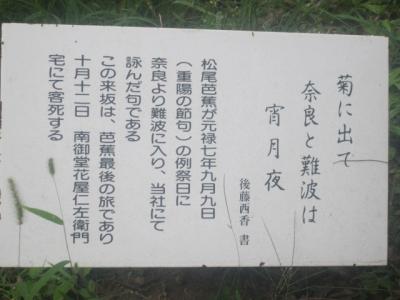 菊に出て
奈良と難波は
宵月夜
後藤西香 書
松尾芭蕉が元禄七年九月九日
（重陽の節句）の例祭日に
奈良より難波に入り、当社にて
詠んだ句である
この来坂は、芭蕉最後の旅であり
十月十二日 南御堂花屋仁左衛門
宅にて客死する